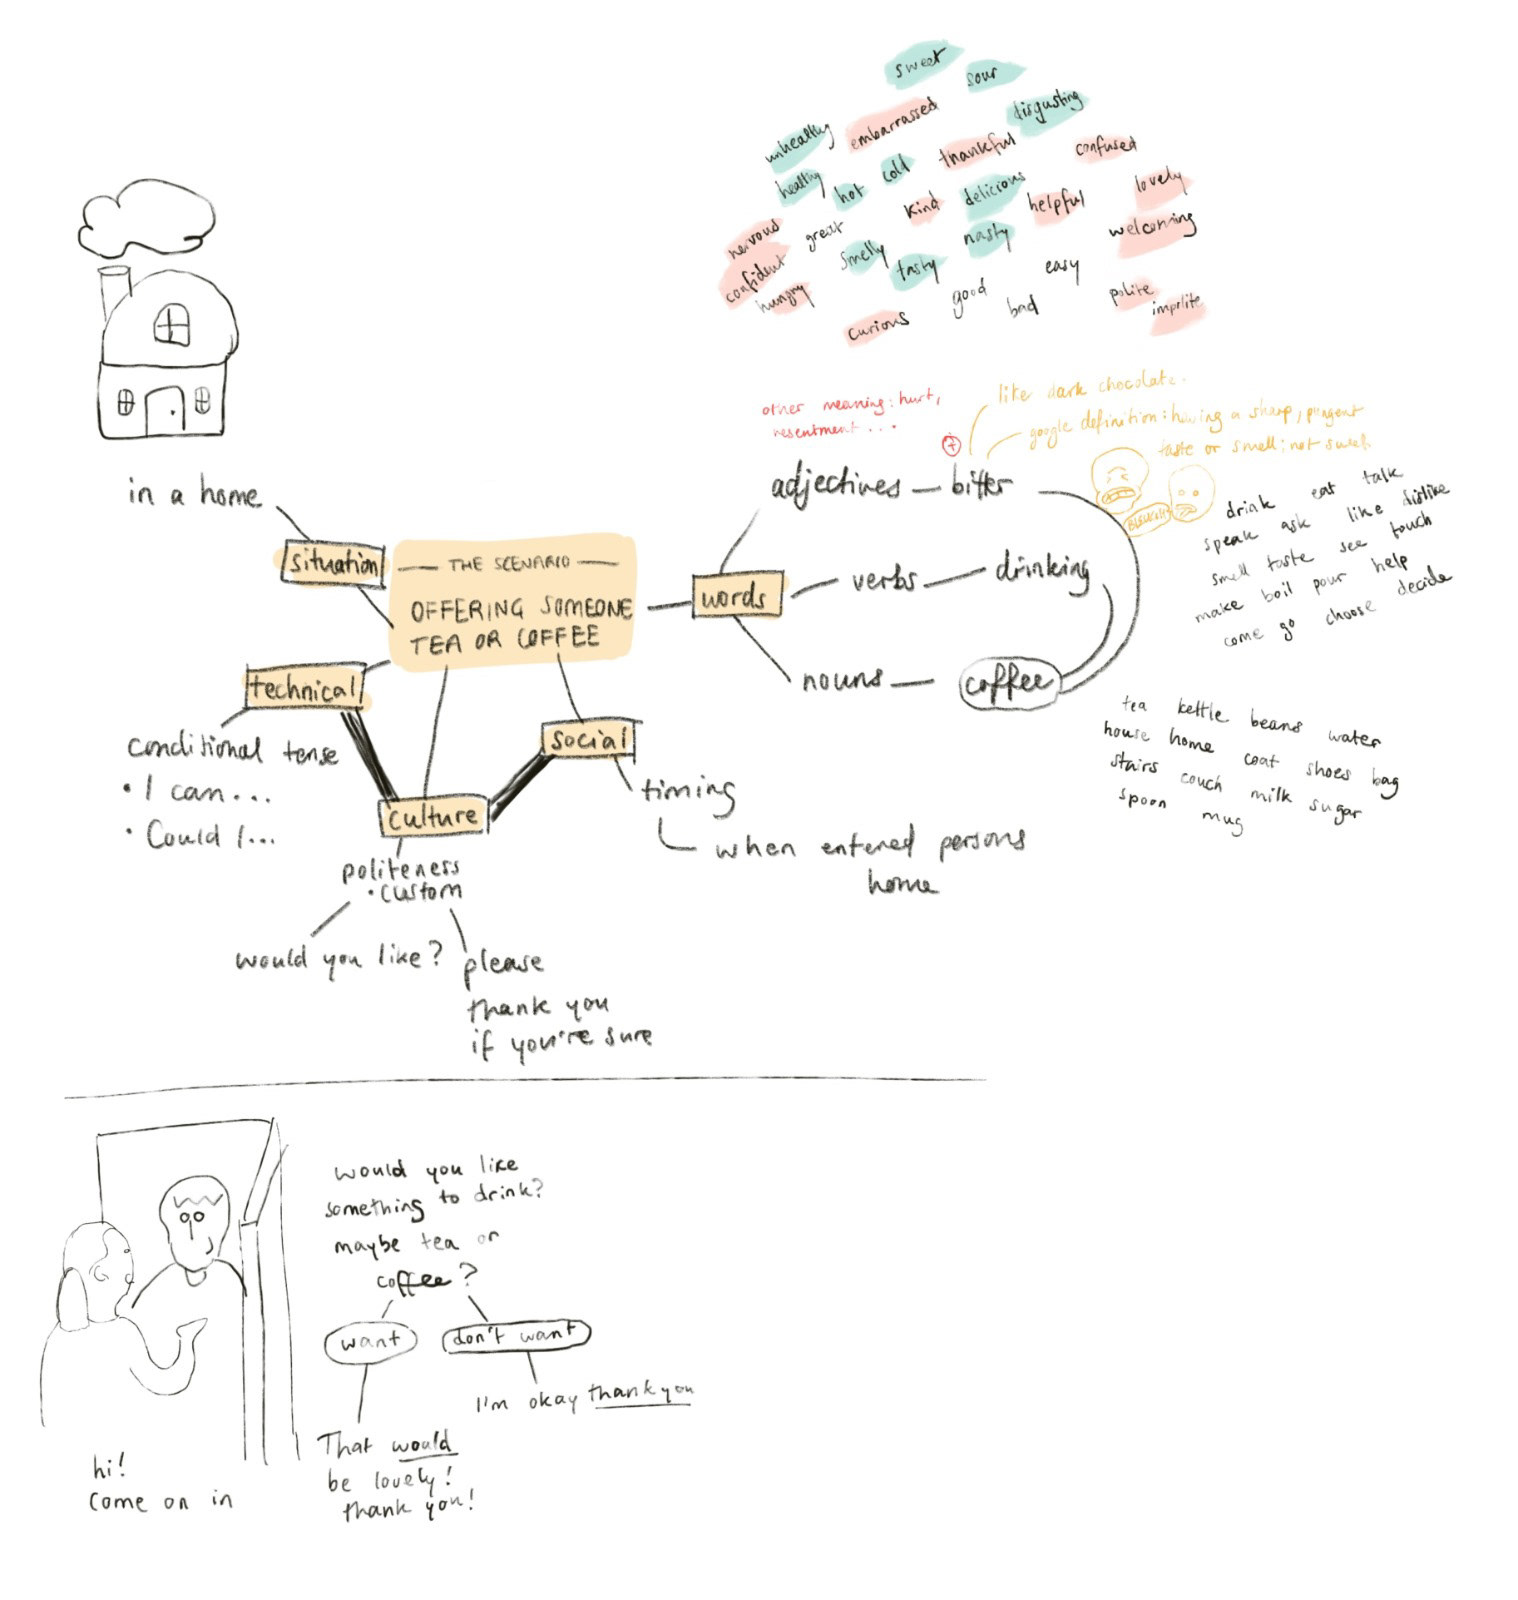 sweet
sour
disgusting
unhealthy
embarrassed
thankful
confused
healthy
hot
cold
kind
delicious
helpful
lovely
nervous
great
smelly
nasty
welcoming
confident
hungry
tasty
good
bad
easy
polite
curious
like dark chocolate.
other meaning: hurt,
resentment...
google definition: having a sharp, pungent
taste or smell; not sweet.
adjectives — bitter
BLEUGH!
drink eat talk
speak ask like dislike
smell taste see touch
make boil pour help
come go choose decide
in a home
situation
— THE SCENARIO —
OFFERING SOMEONE
TEA OR COFFEE
words
verbs — drinking
nouns — coffee
tea kettle beans water
house home coat shoes bag
stairs couch milk sugar
spoon mug
technical
conditional tense
• I can...
• Could I...
social
timing
when entered persons
home
culture
politeness
• custom
would you like?
please
thank you
if you're sure
would you like
something to drink?
maybe tea or
coffee?
want
don't want
I'm okay thank you
That would
be lovely!
thank you!
hi!
come on in